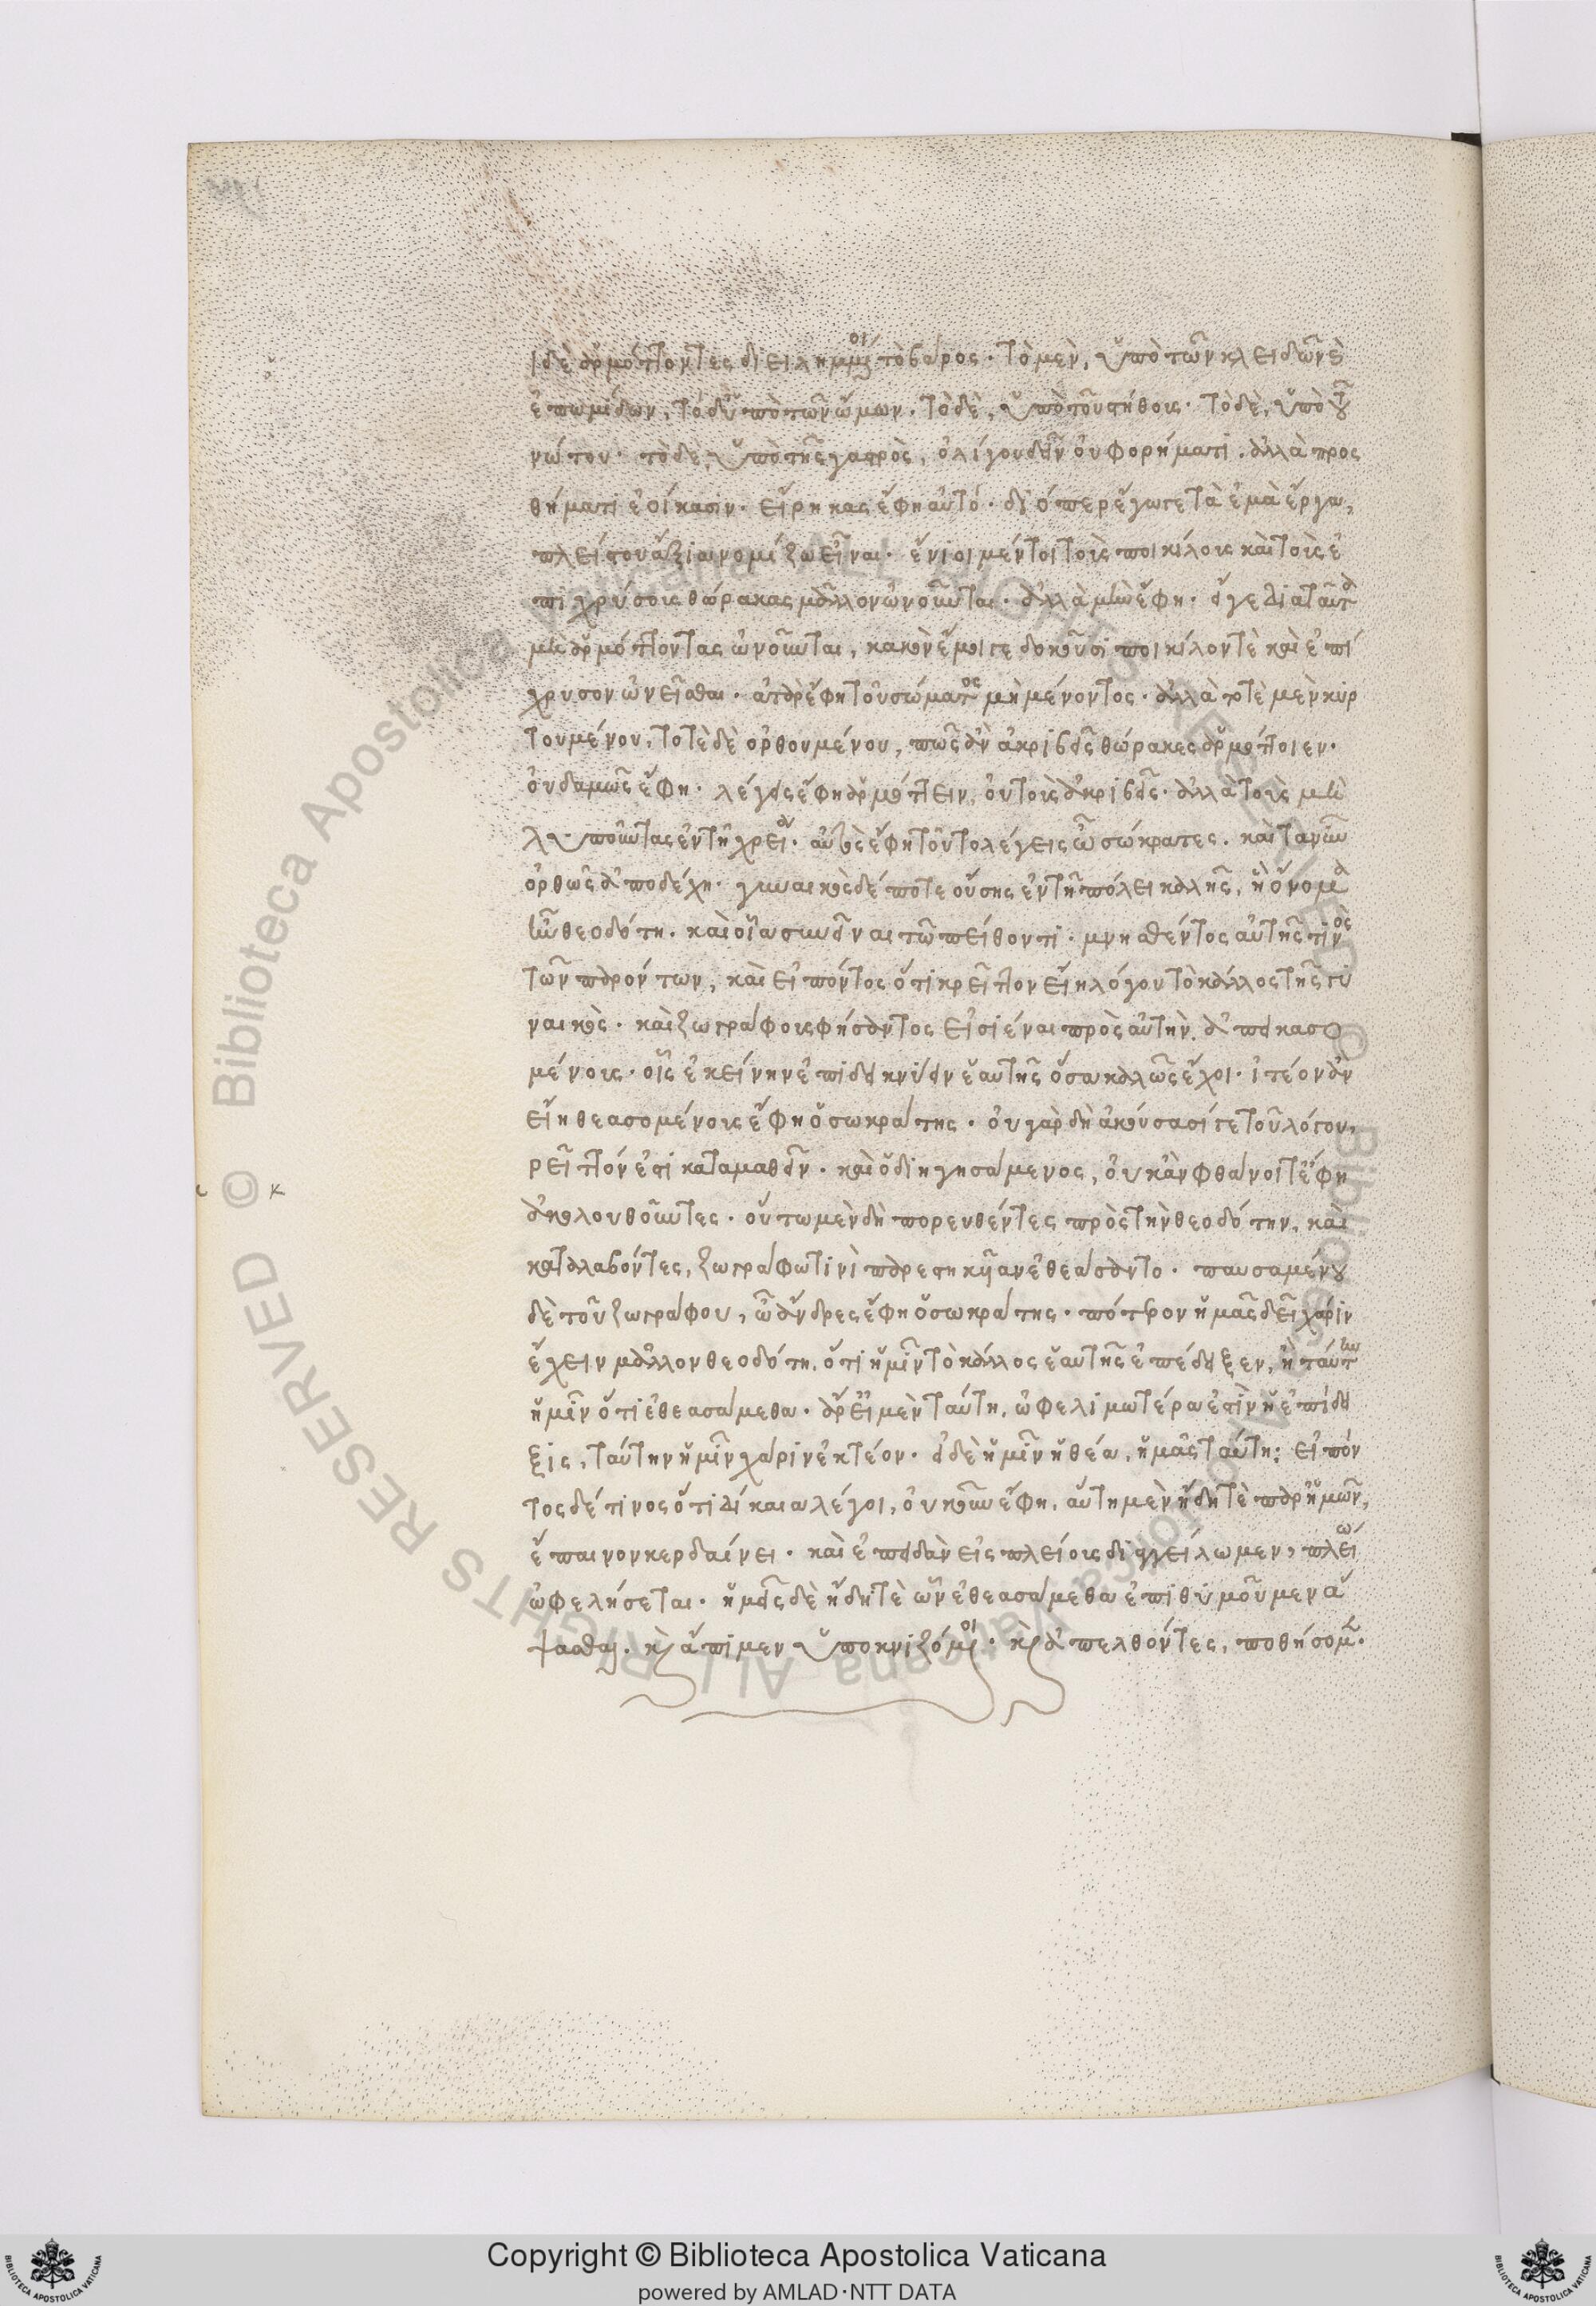 ι δὲ ἁρμόττοντες διειλημμένοι τὸ βάρος· τὸ μὲν, ὑπὸ τῶν κλειδῶν καὶ
ἐπωμίδων, τὸ δ' ὑπὸ τῶν ὤμων. τὸ δὲ, ὑπὸ τοῦ στήθους· τὸ δὲ, ὑπὸ τοῦ
νώτου· τὸ δὲ, ὑπὸ τῆς γαστρὸς, ὀλίγου δεῖν οὐ φορήματι. ἀλλὰ προς
θήματι ἐοίκασιν· εἴρηκας ἔφη αὐτό· δι' ὅπερ ἔγωγε τὰ ἐμὰ ἔργα,
πλείστου ἄξια νομίζω εἶναι· ἔνιοι μέντοι τοὺς ποικίλους καὶ τοὺς ἐ
πιχρύσους θώρακας μᾶλλον ὠνοῦνται· ἀλλὰ μὴν ἔφη· εἴγε διὰ ταῦτα
μὴ ἁρμόττοντας ὠνοῦνται, κακὸν ἔμοιγε δοκοῦσι ποικίλον τὲ καὶ ἐπί
χρυσον ὠνεῖσθαι· ἀτὰρ ἔφη τοῦ σώματος μὴ μένοντος· ἀλλὰ τοτὲ μὲν κυρ
τουμένου, τοτὲ δὲ ὀρθουμένου, πῶς ἂν ἀκριβεῖς θώρακες ἁρμόττοιεν·
οὐδαμῶς ἔφη· λέγεις ἔφη ἁρμόττειν, οὐ τοὺς ἀκριβεῖς· ἀλλὰ τοὺς μὴ
λυποῦντας ἐν τῇ χρείᾳ· αὐτὸς ἔφη τοῦτο λέγεις ὦ σώκρατες. καὶ πάνυ
ὀρθῶς ἀποδέχη· γυναικὸς δέ ποτε οὔσης ἐν τῇ πόλει καλῆς, ᾗ ὄνομα
ἦν θεοδότη. καὶ οἵα συνεῖναι τῶ πείθοντι· μνησθέντος αὐτῆς τινὸς
τῶν παρόντων, καὶ εἰπόντος ὅτι κρεῖττον εἴη λόγου τὸ κάλλος τῆς γυ
ναικὸς· καὶ ζωγράφους φήσαντος εἰσιέναι πρὸς αὐτὴν ἀπεικασο
μένους· οἷς ἐκείνην ἐπιδεικνύειν ἑαυτῆς ὅσα καλῶς ἔχοι· ἰτέον ἂν
εἴη θεασομένους ἔφη ὁ σωκράτης· οὐ γὰρ δὴ ἀκούσασί γε τοῦ λόγου,
ρεῖττόν ἐστι καταμαθεῖν· καὶ ὁ διηγησάμενος, οὐκ ἂν φθάνοιτ' ἔφη
ἀκολουθοῦντες· οὕτω μὲν δὴ πορευθέντες πρὸς τὴν θεοδότην, καὶ
καταλαβόντες, ζωγράφω τινὶ παρεστηκυῖαν ἐθεάσαντο· παυσαμένου
δὲ τοῦ ζωγράφου, ὦ ἄνδρες ἔφη ὁ σωκράτης· πότερον ἡμᾶς δεῖ χάριν
ἔχειν μᾶλλον θεοδότη, ὅτι ἡμῖν τὸ κάλλος ἑαυτῆς ἐπέδειξεν, ἢ ταύτην
ἡμῖν ὅτι ἐθεασάμεθα· ἆρ' εἰ μὲν ταύτη, ὠφελιμωτέρα ἐστὶν ἡ ἐπίδει
ξις, ταύτην ἡμῖν χάριν ἑκτέον· εἰ δὲ ἡμῖν ἡ θέα, ἡμᾶς ταύτη: εἰπόν
τος δέ τινος ὅτι δίκαια λέγοι, οὐκοῦν ἔφη, αὕτη μὲν ἤδη τὲ παρ' ἡμῶν,
ἔπαινον κερδαίνει· καὶ ἐπειδὰν εἰς πλείους διαγγείλωμεν, πλείω
ὠφελήσεται· ἡμεῖς δὲ ἤδη τὲ ὧν ἐθεασάμεθα ἐπιθυμοῦμεν ἅ
ψασθαι. καὶ ἄπιμεν ὑποκνιζόμενοι· καὶ ἀπελθόντες, ποθήσομεν·
κ